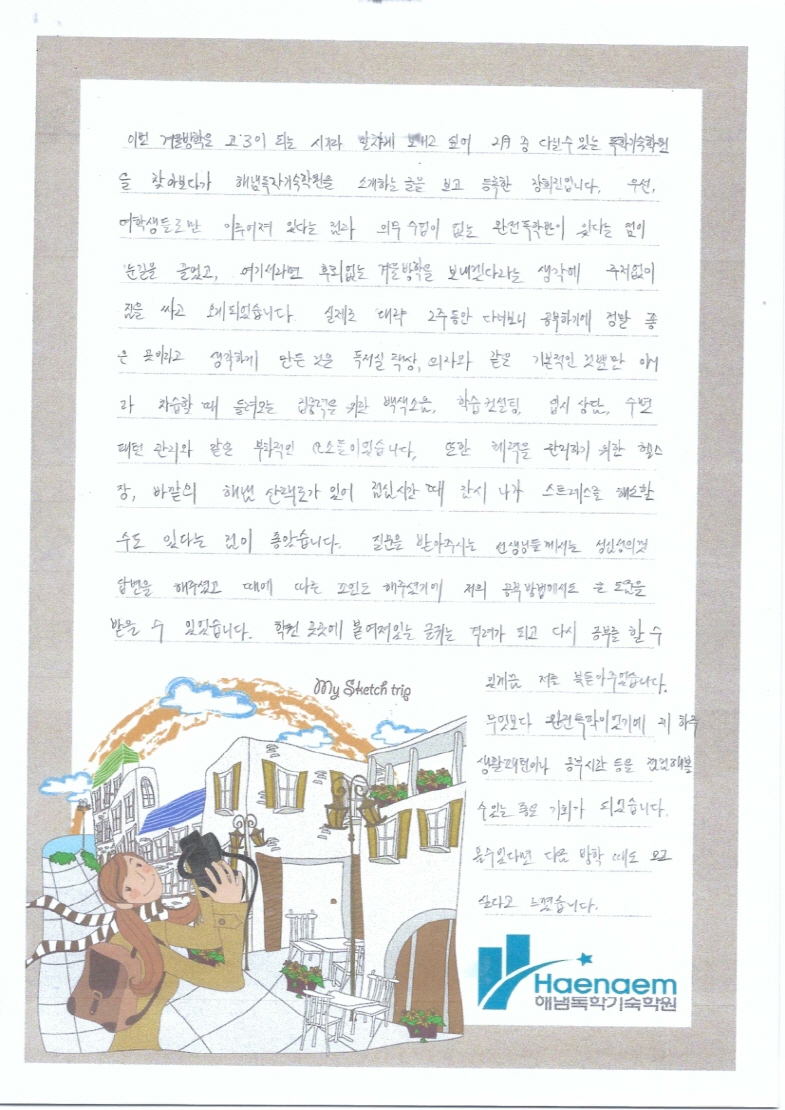 이번 겨울방학을 고3이 되는 시기라 알차게 보내고 싶어 2月 중 다닐수있는 독학기숙학원
을 찾아보다가 해냄독학기숙학원을 소개하는 글을 보고 등록한 장희진입니다. 우선,
여학생들로만 이루어져 있다는 점과 의무 수업이 없는 완전독학반이 있다는 점이
눈길을 끌었고, 여기서라면 후회없는 겨울방학을 보내겠다라는 생각에 주저없이
짐을 싸고 오게되었습니다. 실제로 대략 2주동안 다녀보니 공부하기에 정말 좋
은 곳이라고 생각하게 만든 것은 독서실 책상, 의자와 같은 기본적인 것뿐만 아니
라 자습할 때 들려오는 집중력을 위한 백색소음, 학습컨설팅, 입시 상담, 수면
패턴 관리와 같은 부학적인 요소들이었습니다. 또한 체력을 관리하기 위한 헬스
장, 바깥의 해냄 산책로가 있어 점심시간 때 잠시 나가 스트레스를 해소할
수도 있다는 점이 좋았습니다. 질문을 받아주시는 선생님들께서는 성심성의껏
답변을 해주셨고 때에 따른 조언도 해주셨기에 저의 공부방법에서도 큰 도움을
받을 수 있었습니다. 학원 곳곳에 붙여져있는 글귀는 격려가 되고 다시 공부를 할 수
My Sketch trip
있게끔 저를 북돋아주었습니다.
무엇보다 완전독학이었기에 제 하루
생활패턴이나 공부시간 등을 점검해볼
수있는 좋은 기회가 되었습니다.
올수있다면 다음 방학 때도 오고
싶다고 느꼈습니다.
Haenaem
해냄독학기숙학원